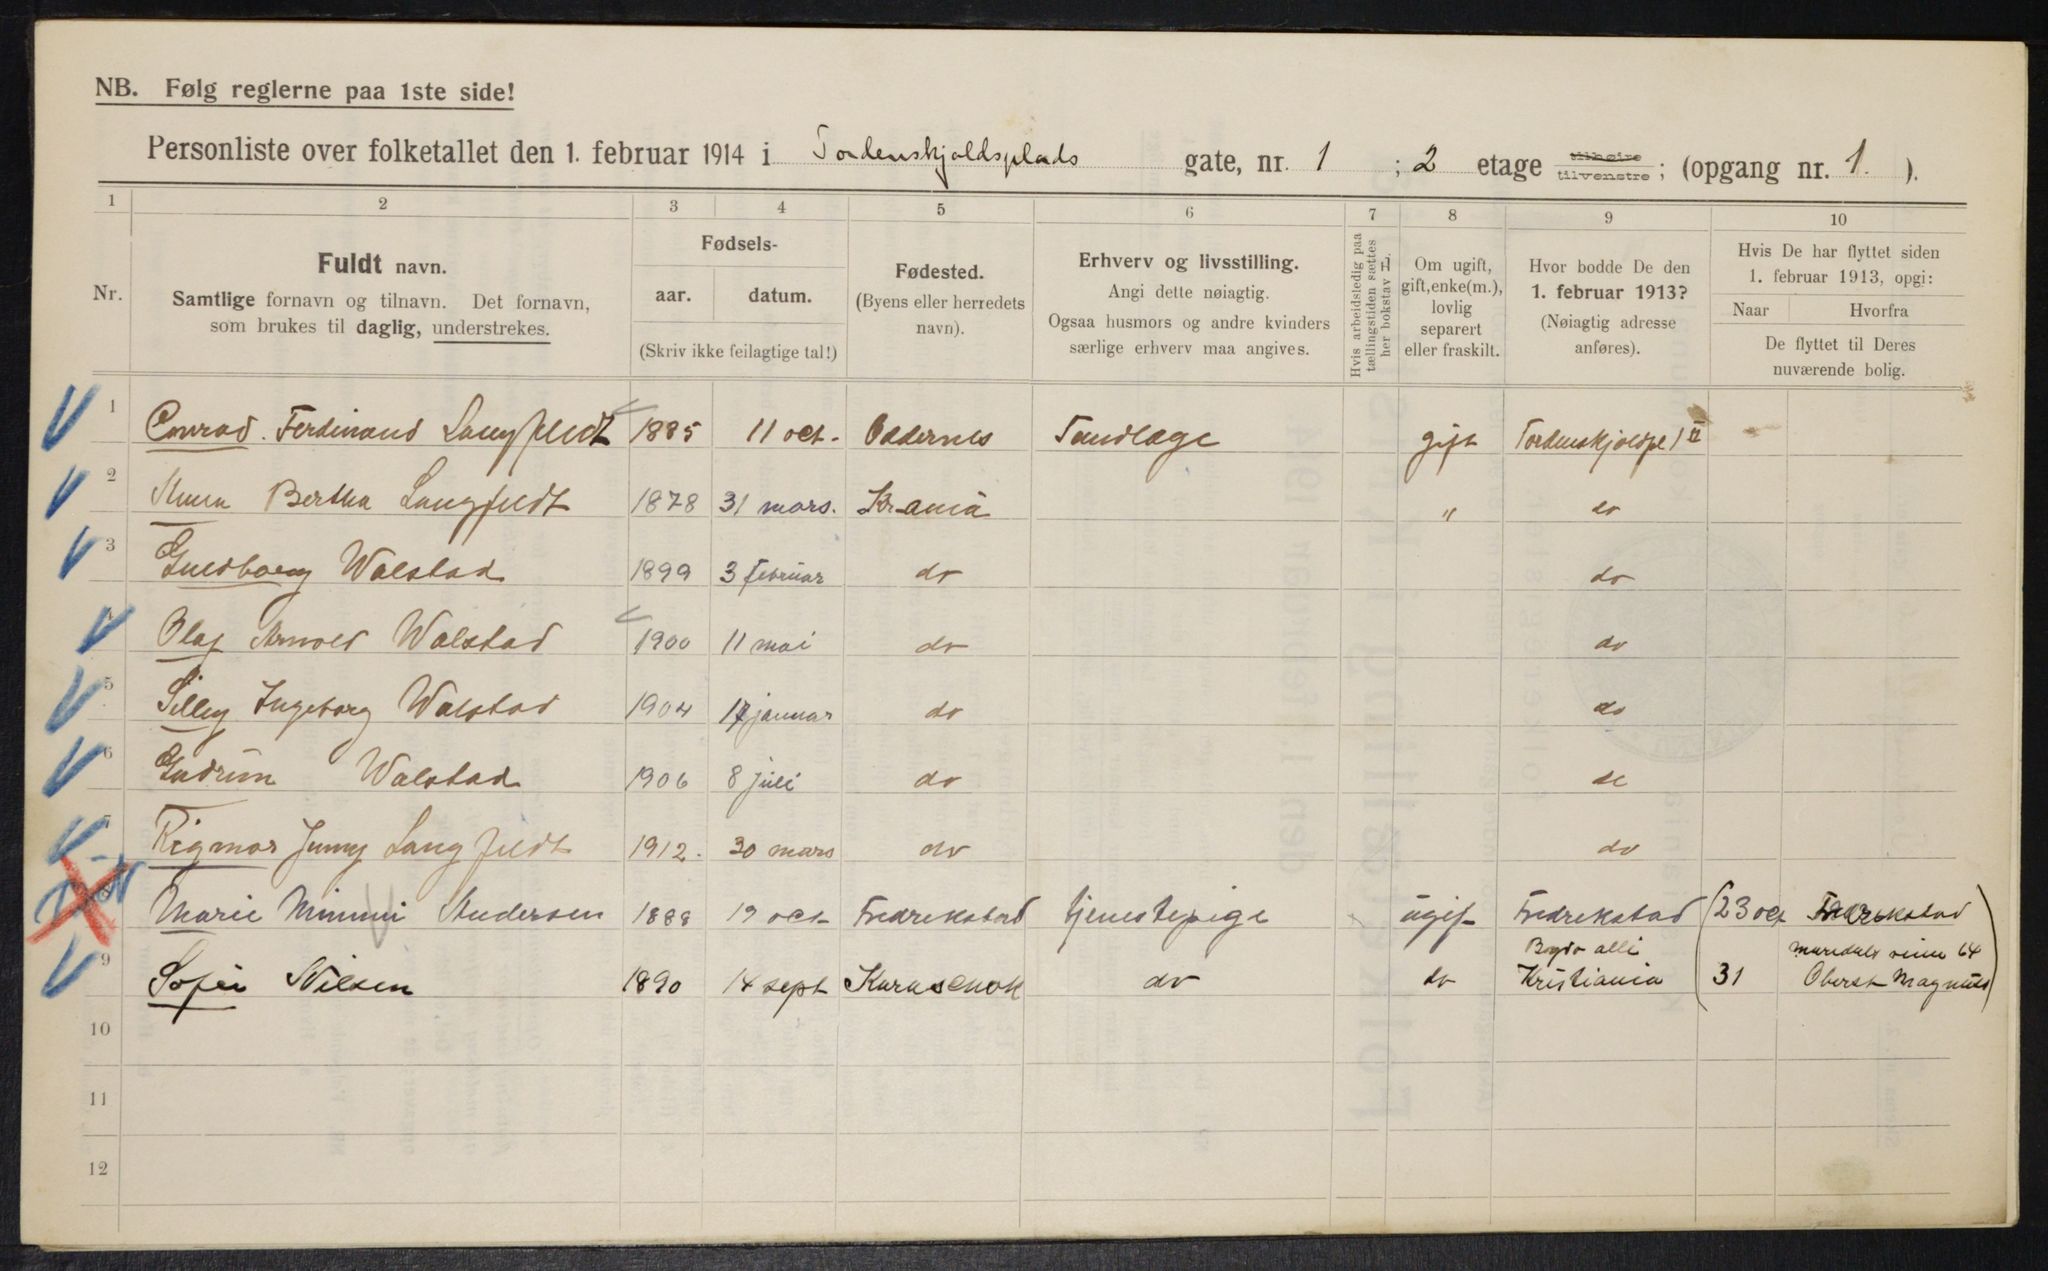 NB. Følg reglerne paa 1ste side!
Personliste over folketallet den 1. februar 1914 i Tordenskjoldsplads gate, nr. 1 ; 2 etage tilhøire tilvenstre; (opgang nr. 1. ).
1 2 3 4 5 6 7 8 9 10
Nr.
Fuldt navn.
Samtlige fornavn og tilnavn. Det fornavn,
som brukes til daglig, understrekes.
Fødsels-
aar. datum.
(Skriv ikke feilagtige tal!)
Fødested.
(Byens eller herredets
navn).
Erhverv og livsstilling.
Angi dette nøiagtig.
Ogsaa husmors og andre kvinders
særlige erhverv maa angives.
Hvis arbeidsledig paa
tællingstiden sættes
her bokstav L.
Om ugift,
gift, enke(m.),
lovlig
separert
eller fraskilt.
Hvor bodde De den
1. februar 1913?
(Nøiagtig adresse
anføres).
Hvis De har flyttet siden
1. februar 1913, opgi:
Naar Hvorfra
De flyttet til Deres
nuværende bolig.
1 Conrad. Ferdinand Langfeldt 1885 11 oct. Oddernes Tandlæge gift Tordenskjoldpl 1 II
2 Anna Bertha Langfeldt 1878 31 mars. Kr.ania " do
3 Guldborg Walstad 1899 3 februar do do
4 Olaf Arnold Walstad 1900 11 mai do do
5 Silley Ingeborg Walstad 1904 17 januar do do
6 Gudrun Walstad 1906 8 juli do do
7 Rigmor Jenny Langfeldt 1912. 30 mars do do
8 Marie Mimmi Andersen 1888 19 oct Fredrekstad tjenestepige ugift Fredrekstad (23 oct Fredrekstad
9 Sofie Nilsen 1890 14 sept Karaschok do do Kristiania 31 Oberst Magnus)
10
11
12